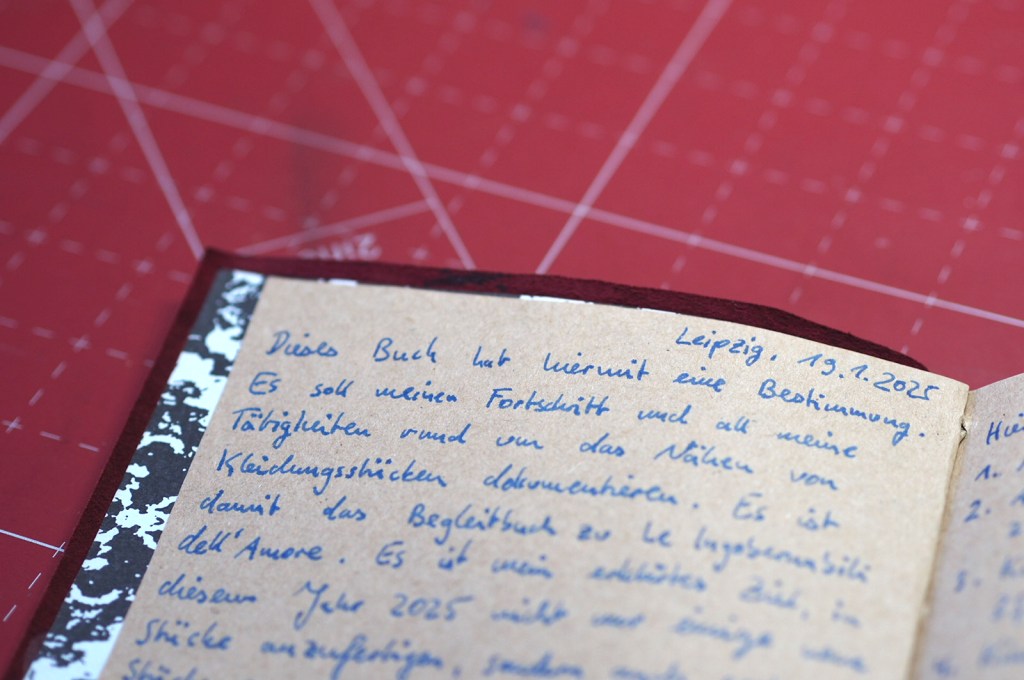 Leipzig, 19.1.2025
Dieses Buch hat hiermit eine Bestimmung.
Es soll meinen Fortschritt und all meine
Tätigkeiten rund um das Nähen von
Kleidungsstücken dokumentieren. Es ist
damit das Begleitbuch zu Le Ingobernabili
dell'Amore. Es ist mein erklärtes Ziel, in
diesem Jahr 2025 nicht nur einige neue
Stücke anzufertigen, sondern
1.
2.